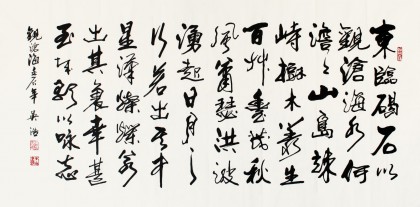 東臨碣石以
觀滄海水何
澹澹山島竦
峙樹木叢生
百艸豐茂秋
風蕭瑟洪波
湧起日月之
行若出其中
星漢燦爛若
出其裏幸甚
至哉歌以咏志
觀滄海